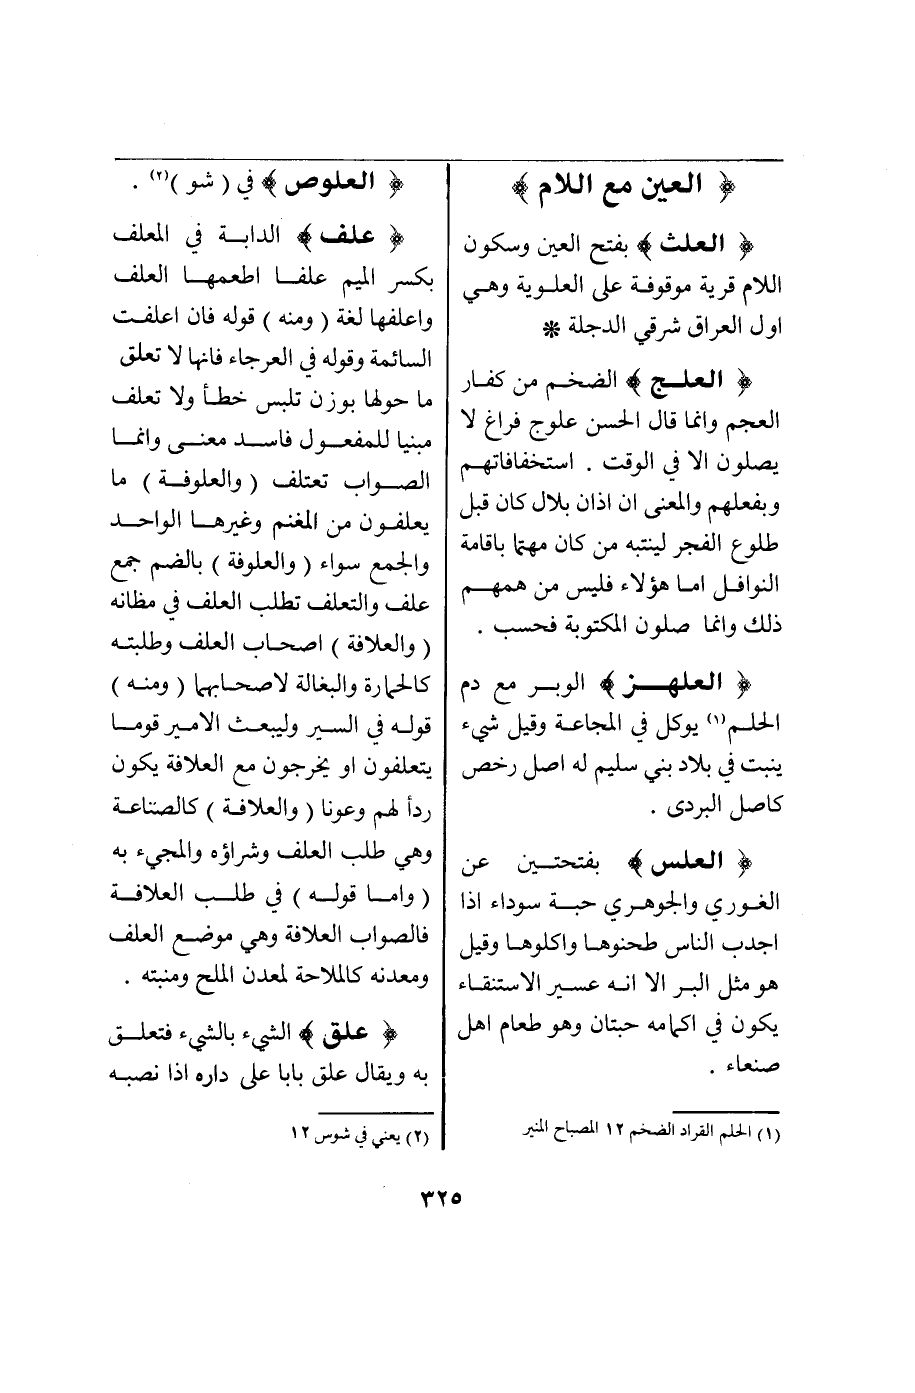 ﴿ العين مع اللام ﴾
﴿ العلث ﴾ بفتح العين وسكون
اللام قرية موقوفة على العلوية وهي
اول العراق شرقي الدجلة *
﴿ العلـج ﴾ الضخم من كفار
العجم وانما قال الحسن علوج فراغ لا
يصلون الا في الوقت . استخفافاتهم
وبفعلهم والمعنى ان اذان بلال كان قبل
طلوع الفجر لينتبه من كان مهتما باقامة
النوافل اما هؤلاء فليس من همهم
ذلك وانما صلون المكتوبة فحسب .
﴿ العلهـز ﴾ الوبر مع دم
الحلم(١) يوكل في المجاعة وقيل شيء
ينبت في بلاد بني سليم له اصل رخص
كاصل البردى .
﴿ العلس ﴾ بفتحتين عن
الغوري والجوهري حبة سوداء اذا
اجدب الناس طحنوها واكلوها وقيل
هو مثل البر الا انه عسير الاستنقاء
يكون في اكمامه حبتان وهو طعام اهل
صنعاء .
(١) الحلم القراد الضخم ١٢ المصباح المنير
﴿ العلوص ﴾ في ( شو )(٢) .
﴿ علف ﴾ الدابة في المعلف
بكسر الميم علفا اطعمها العلف
واعلفها لغة ( ومنه ) قوله فان اعلفت
السائمة وقوله في العرجاء فانها لا تعلق
ما حولها بوزن تلبس خطأ ولا تعلف
مبنيا للمفعول فاسد معنى وانما
الصواب تعتلف ( والعلوفة ) ما
يعلفون من المغنم وغيرها الواحد
والجمع سواء ( والعلوفة ) بالضم جمع
علف والتعلف تطلب العلف في مظانه
( والعلافة ) اصحاب العلف وطلبته
كالحمارة والبغالة لاصحابها ( ومنه )
قوله في السير وليبعث الامير قوما
يتعلفون او يخرجون مع العلافة يكون
ردأ لهم وعونا ( والعلافة ) كالصناعة
وهي طلب العلف وشراؤه والمجيء به
( واما قوله ) في طلب العلافة
فالصواب العلافة وهي موضع العلف
ومعدنه كالملاحة لمعدن الملح ومنبته .
﴿ علق ﴾ الشيء بالشيء فتعلق
به ويقال علق بابا على داره اذا نصبه
(٢) يعني في شوس ١٢
٣٢٥